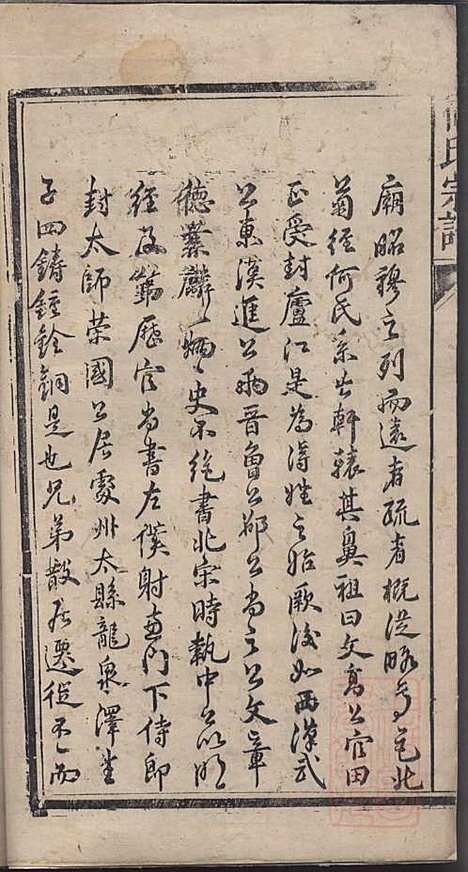 何氏宗譜
廟昭穆之列而遠者疏者概從略焉乞北
菊徑何氏系出軒轅其鼻祖曰文高公官田
正受封廬江是為得姓之始厥後如西漢武
公東漢進公兩晉魯公郯公尚之公文章
德業麟麟炳炳史不絕書北宋時執中公以明
經及第歷官尚書左僕射兼門下侍郎
封太師榮國公居處州太縣龍泉澤生
子四鑄鍾銓銅是也兄弟散居遷徙不一而